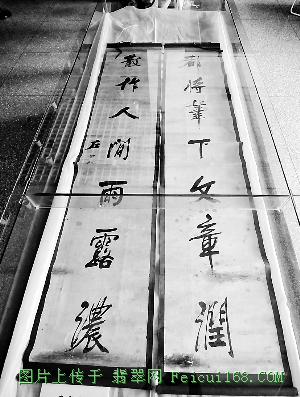 都将筆下文章潤
散作人間雨露濃
图片上传于 翡翠网 Feicui168.COM